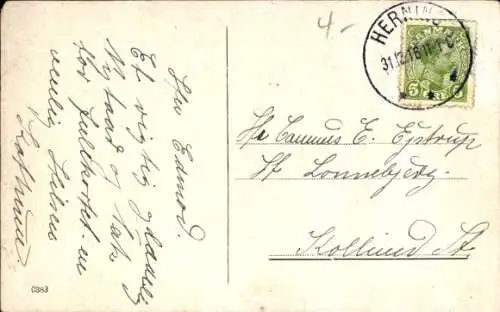 4-
HERNING
31.12.16
DANMARK
5
Kjære Edmod.
Et rigtig glædelig
Nytaar og Tak
for Julekortet. en
venlig Hilsen
Hr Rasmus E. Ejstrup
Hr Lonnebjerg.
Kollund St
0383